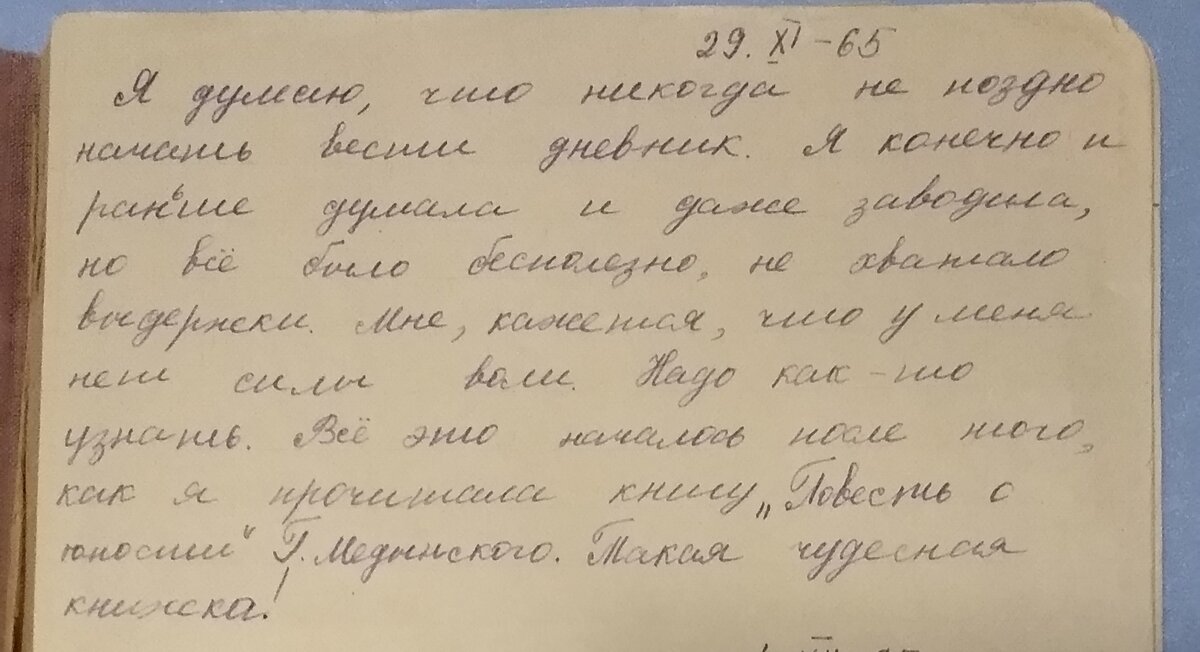 29. XI – 65
Я думаю, что никогда не поздно
начать вести дневник. Я конечно и
раньше думала и даже заводила,
но всё было бесполезно, не хватало
выдержки. Мне, кажется, что у меня
нет силы воли. Надо как-то
узнать. Всё это началось после того,
как я прочитала книгу „Повесть о
юности“ Г. Медынского. Такая чудесная
книжка!